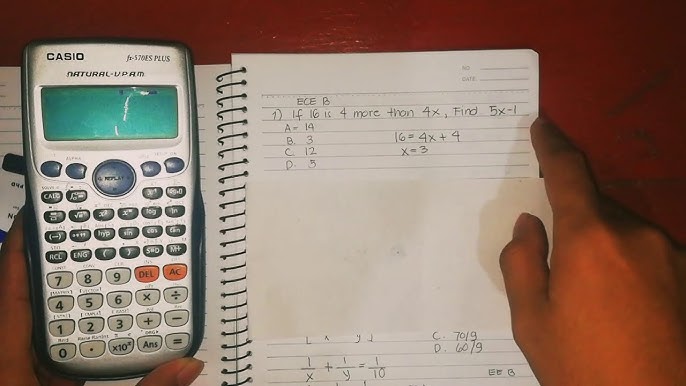 CASIO fx-570ES PLUS
NATURAL-V.P.A.M.
NO.
DATE
ECE B
1) If 16 is 4 more than 4x, Find 5x-1
A= 14
B. 3 16 = 4x + 4
C. 12 x = 3
D. 5
C. 70/9
D. 60/9
1/x + 1/y = 1/10
EE B
ALPHA
REPLAY
CALC
x²
log
ln
(-)
hyp
sin
cos
tan
RCL
ENG
(
)
S⇔D
M+
7 8 9 DEL AC
4 5 6 × ÷
1 2 3 + −
0 . ×10ˣ Ans =